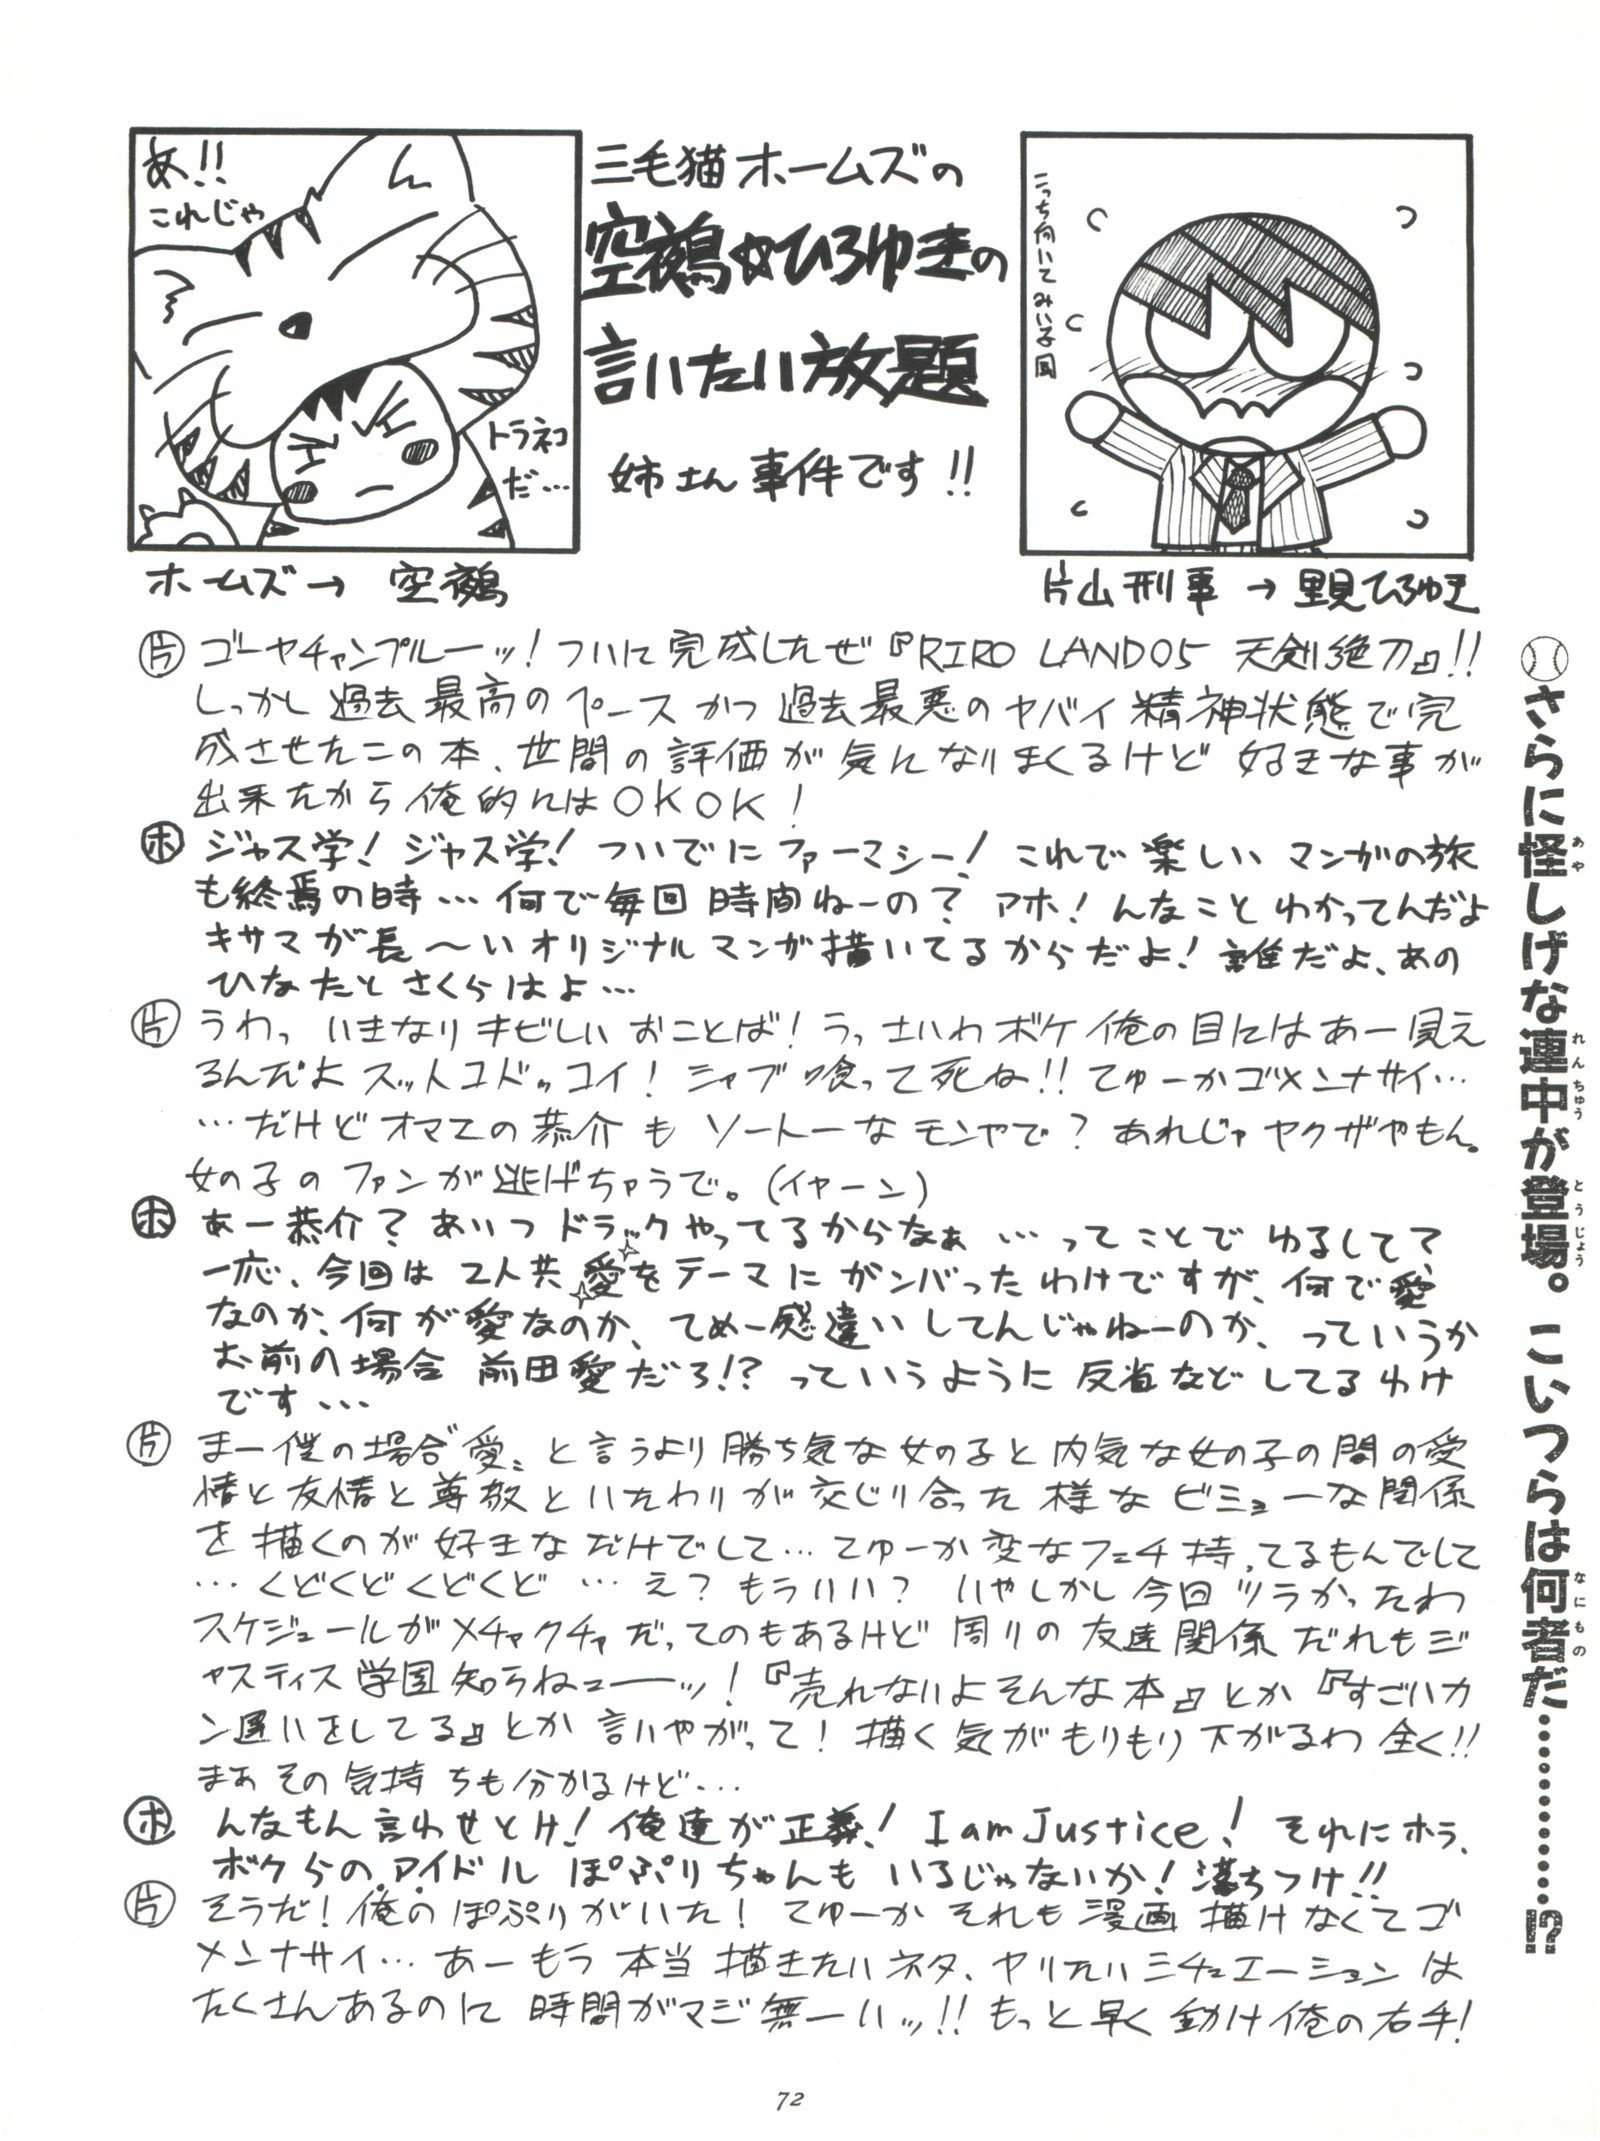 あ!!
これじゃ
トラネコ
だ…
三毛猫ホームズの
空鵺☆ひろゆきの
言いたい放題
姉さん事件です!!
こっち向いてみい子風
ホームズ→ 空鵺
片山刑事→里見ひろゆき
㊊ゴーヤチャンプルーッ!ついに完成したぜ『RIRO LAND05 天剣絶刀』!!
しっかし過去最高のペースかつ過去最悪のヤバイ精神状態で完
成させたこの本、世間の評価が気になりまくるけど好きな事が
出来たから俺的にはOKOK!
ホ ジャス学!ジャス学!ついでにファーマシー!これで楽しいマンガの旅
も終焉の時…何で毎回時間ねーの?アホ!んなことわかってんだよ
キサマが長〜いオリジナルマンガ描いてるからだよ!誰だよ、あの
ひなたとさくらはよ…
片 うわっいきなりキビしいおことば!うっさいわボケ俺の目にはあー見え
るんだよスットコドッコイ!シャブ喰って死ね!!てゆーかゴメンナサイ…
…だけどオマエの恭介もソートーなモンやで?あれじゃヤクザやもん。
女の子のファンが逃げちゃうで。(イヤーン)
ホ あー恭介?あいつドラックやってるからなぁ…ってことでゆるしてて
一応、今回は2人共愛をテーマにがンバったわけですが、何で愛
なのか、何が愛なのか、てめー感違いしてんじゃねーのか、っていうか
お前の場合前田愛だろ!?っていうように反省などしてるわけ
です…
片 まー僕の場合"愛"と言うより勝ち気な女の子と内気な女の子の間の愛
情と友情と尊敬といたわりが交じり合った様なビミョーな関係
を描くのが好きなだけでして…てゆーか変なフェチ持ってるもんでして
…くどくどくどくど…え?もういい?いやしかし今回ツラかったわ
スケジュールがメチャクチャだってのもあるけど周りの友達関係だれもジ
ャスティス学園知らねェーーッ!『売れないよそんな本』とか『すごいカ
ン違いをしてる』とか言いやがって!描く気がもりもり下がるわ全く!!
まぁその気持ちも分かるけど…
ホ んなもん言わせとけ!俺達が正義!I am Justice!それにホラ、
ボクらのアイドルぽぷりちゃんもいるじゃないか!落ちつけ!!
片 そうだ!俺のぽぷりがいた!てゆーかそれも漫画描けなくてゴ
メンナサイ…あーもう本当描きたいネタ、ヤリたいシチュエーションは
たくさんあるのに時間がマジ無ーいッ!!もっと早く動け俺の右手!
さらに怪しげな連中が登場。こいつらは何者だ……………!?
あや れんちゅう とうじょう なにもの
72